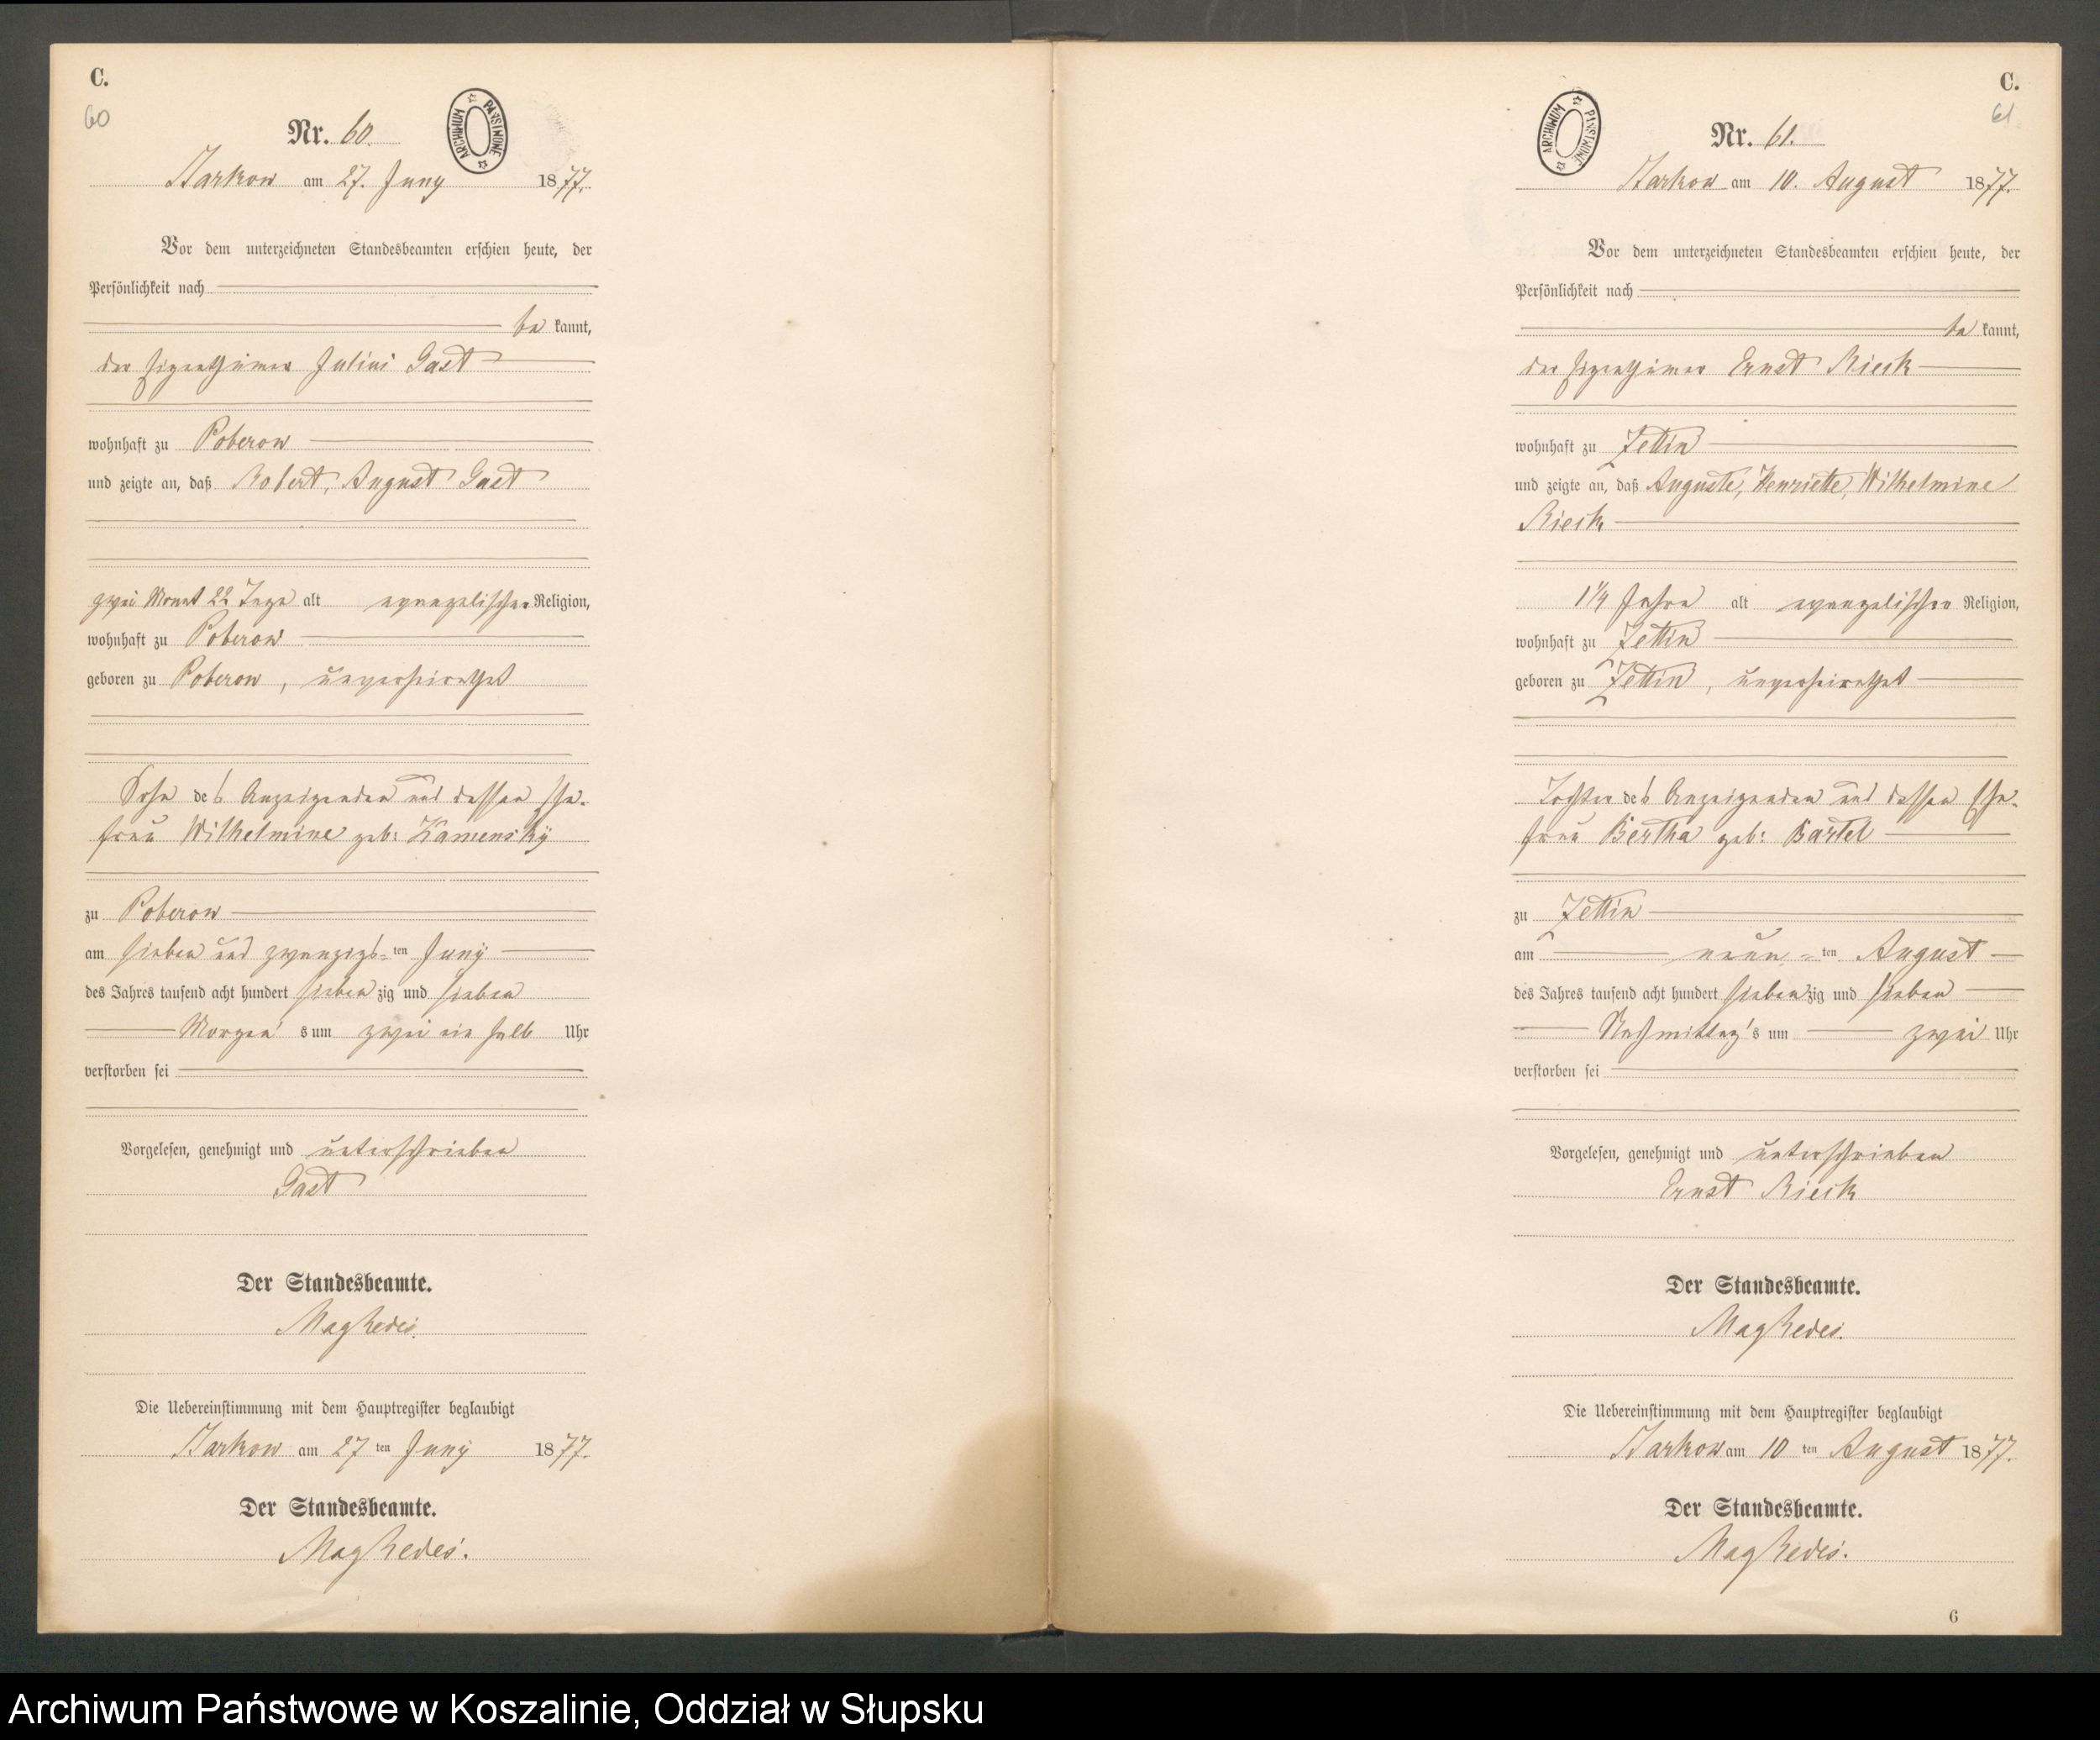 C.
60
Nr. 60.
ARCHIWUM PAŃSTWOWE
Starkow am 27. Juny 1877.
Vor dem unterzeichneten Standesbeamten erschien heute, der
Persönlichkeit nach
be kannt,
der Eigenthümer Julius Gast
wohnhaft zu Poberow
und zeigte an, daß Robert, August Gast
zwei Monat 22 Tage alt evangelischer Religion,
wohnhaft zu Poberow
geboren zu Poberow, unverheirathet
Sohn des Anzeigenden und dessen Ehe-
frau Wilhelmine geb: Kamensky
zu Poberow
am sieben und zwanzigs-ten Juny
des Jahres tausend acht hundert siebenzig und sieben
Morgens um zwei ein halb Uhr
verstorben sei
Vorgelesen, genehmigt und unterschrieben
Gast
Der Standesbeamte.
Die Uebereinstimmung mit dem Hauptregister beglaubigt
Starkow am 27ten Juny 1877.
Der Standesbeamte.
C.
61
Nr. 61.
ARCHIWUM PAŃSTWOWE
Starkow am 10. August 1877.
Vor dem unterzeichneten Standesbeamten erschien heute, der
Persönlichkeit nach
be kannt,
der Eigenthümer Ernst Rieck
wohnhaft zu Zettin
und zeigte an, daß Auguste, Henriette, Wilhelmine
Rieck
1 1/4 Jahre alt evangelischer Religion,
wohnhaft zu Zettin
geboren zu Zettin, unverheirathet
Tochter des Anzeigenden und dessen Ehe-
frau Bertha geb: Bartel
zu Zettin
am neun-ten August
des Jahres tausend acht hundert siebenzig und sieben
Nachmittag's um zwei Uhr
verstorben sei
Vorgelesen, genehmigt und unterschrieben
Ernst Rieck
Der Standesbeamte.
Die Uebereinstimmung mit dem Hauptregister beglaubigt
Starkow am 10ten August 1877.
Der Standesbeamte.
6
Archiwum Państwowe w Koszalinie, Oddział w Słupsku